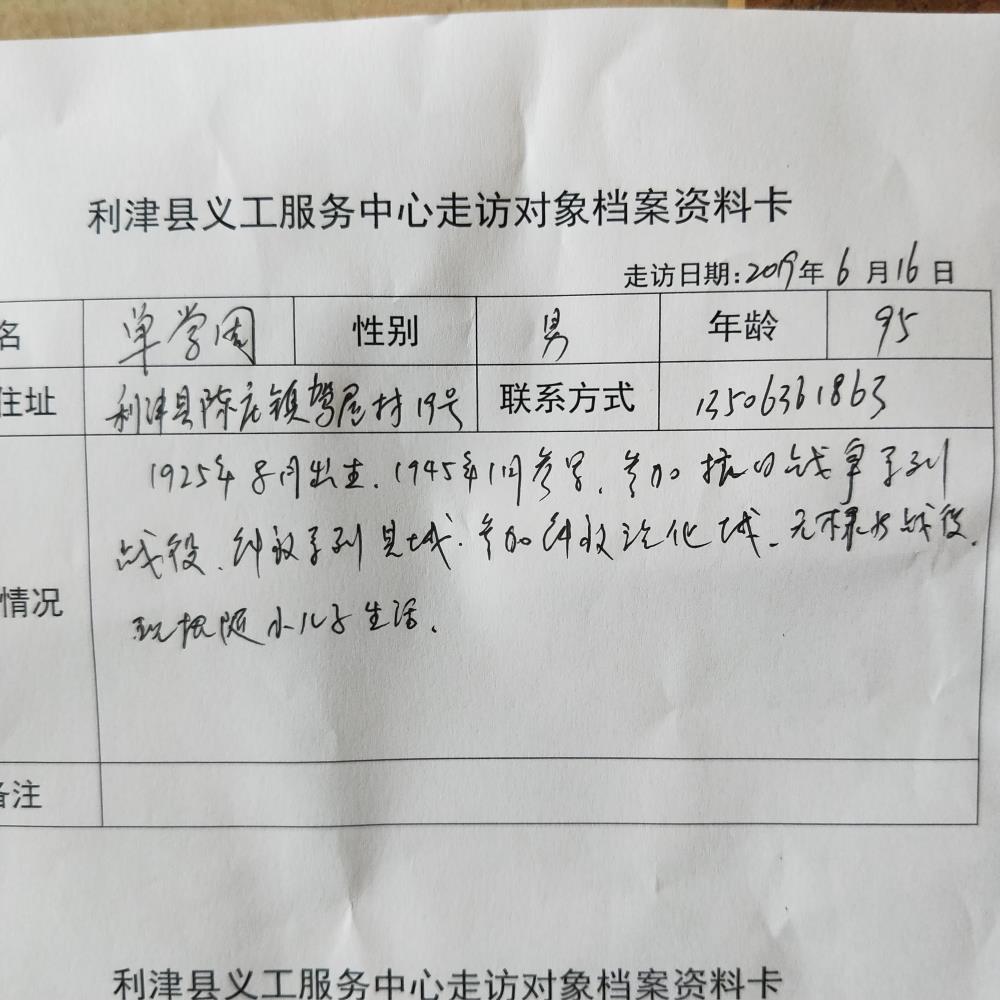 利津县义工服务中心走访对象档案资料卡
走访日期:2019年6月16日
名 单学周 性别 男 年龄 95
住址 利津县陈庄镇驾屋村19号 联系方式 13506361863
1925年8月出生.1945年1月参军.参加抗日战争系列
情况 战役.解放系列县城.参加解放 城.战役.
现在跟随小儿子生活.
备注
利津县义工服务中心走访对象档案资料卡